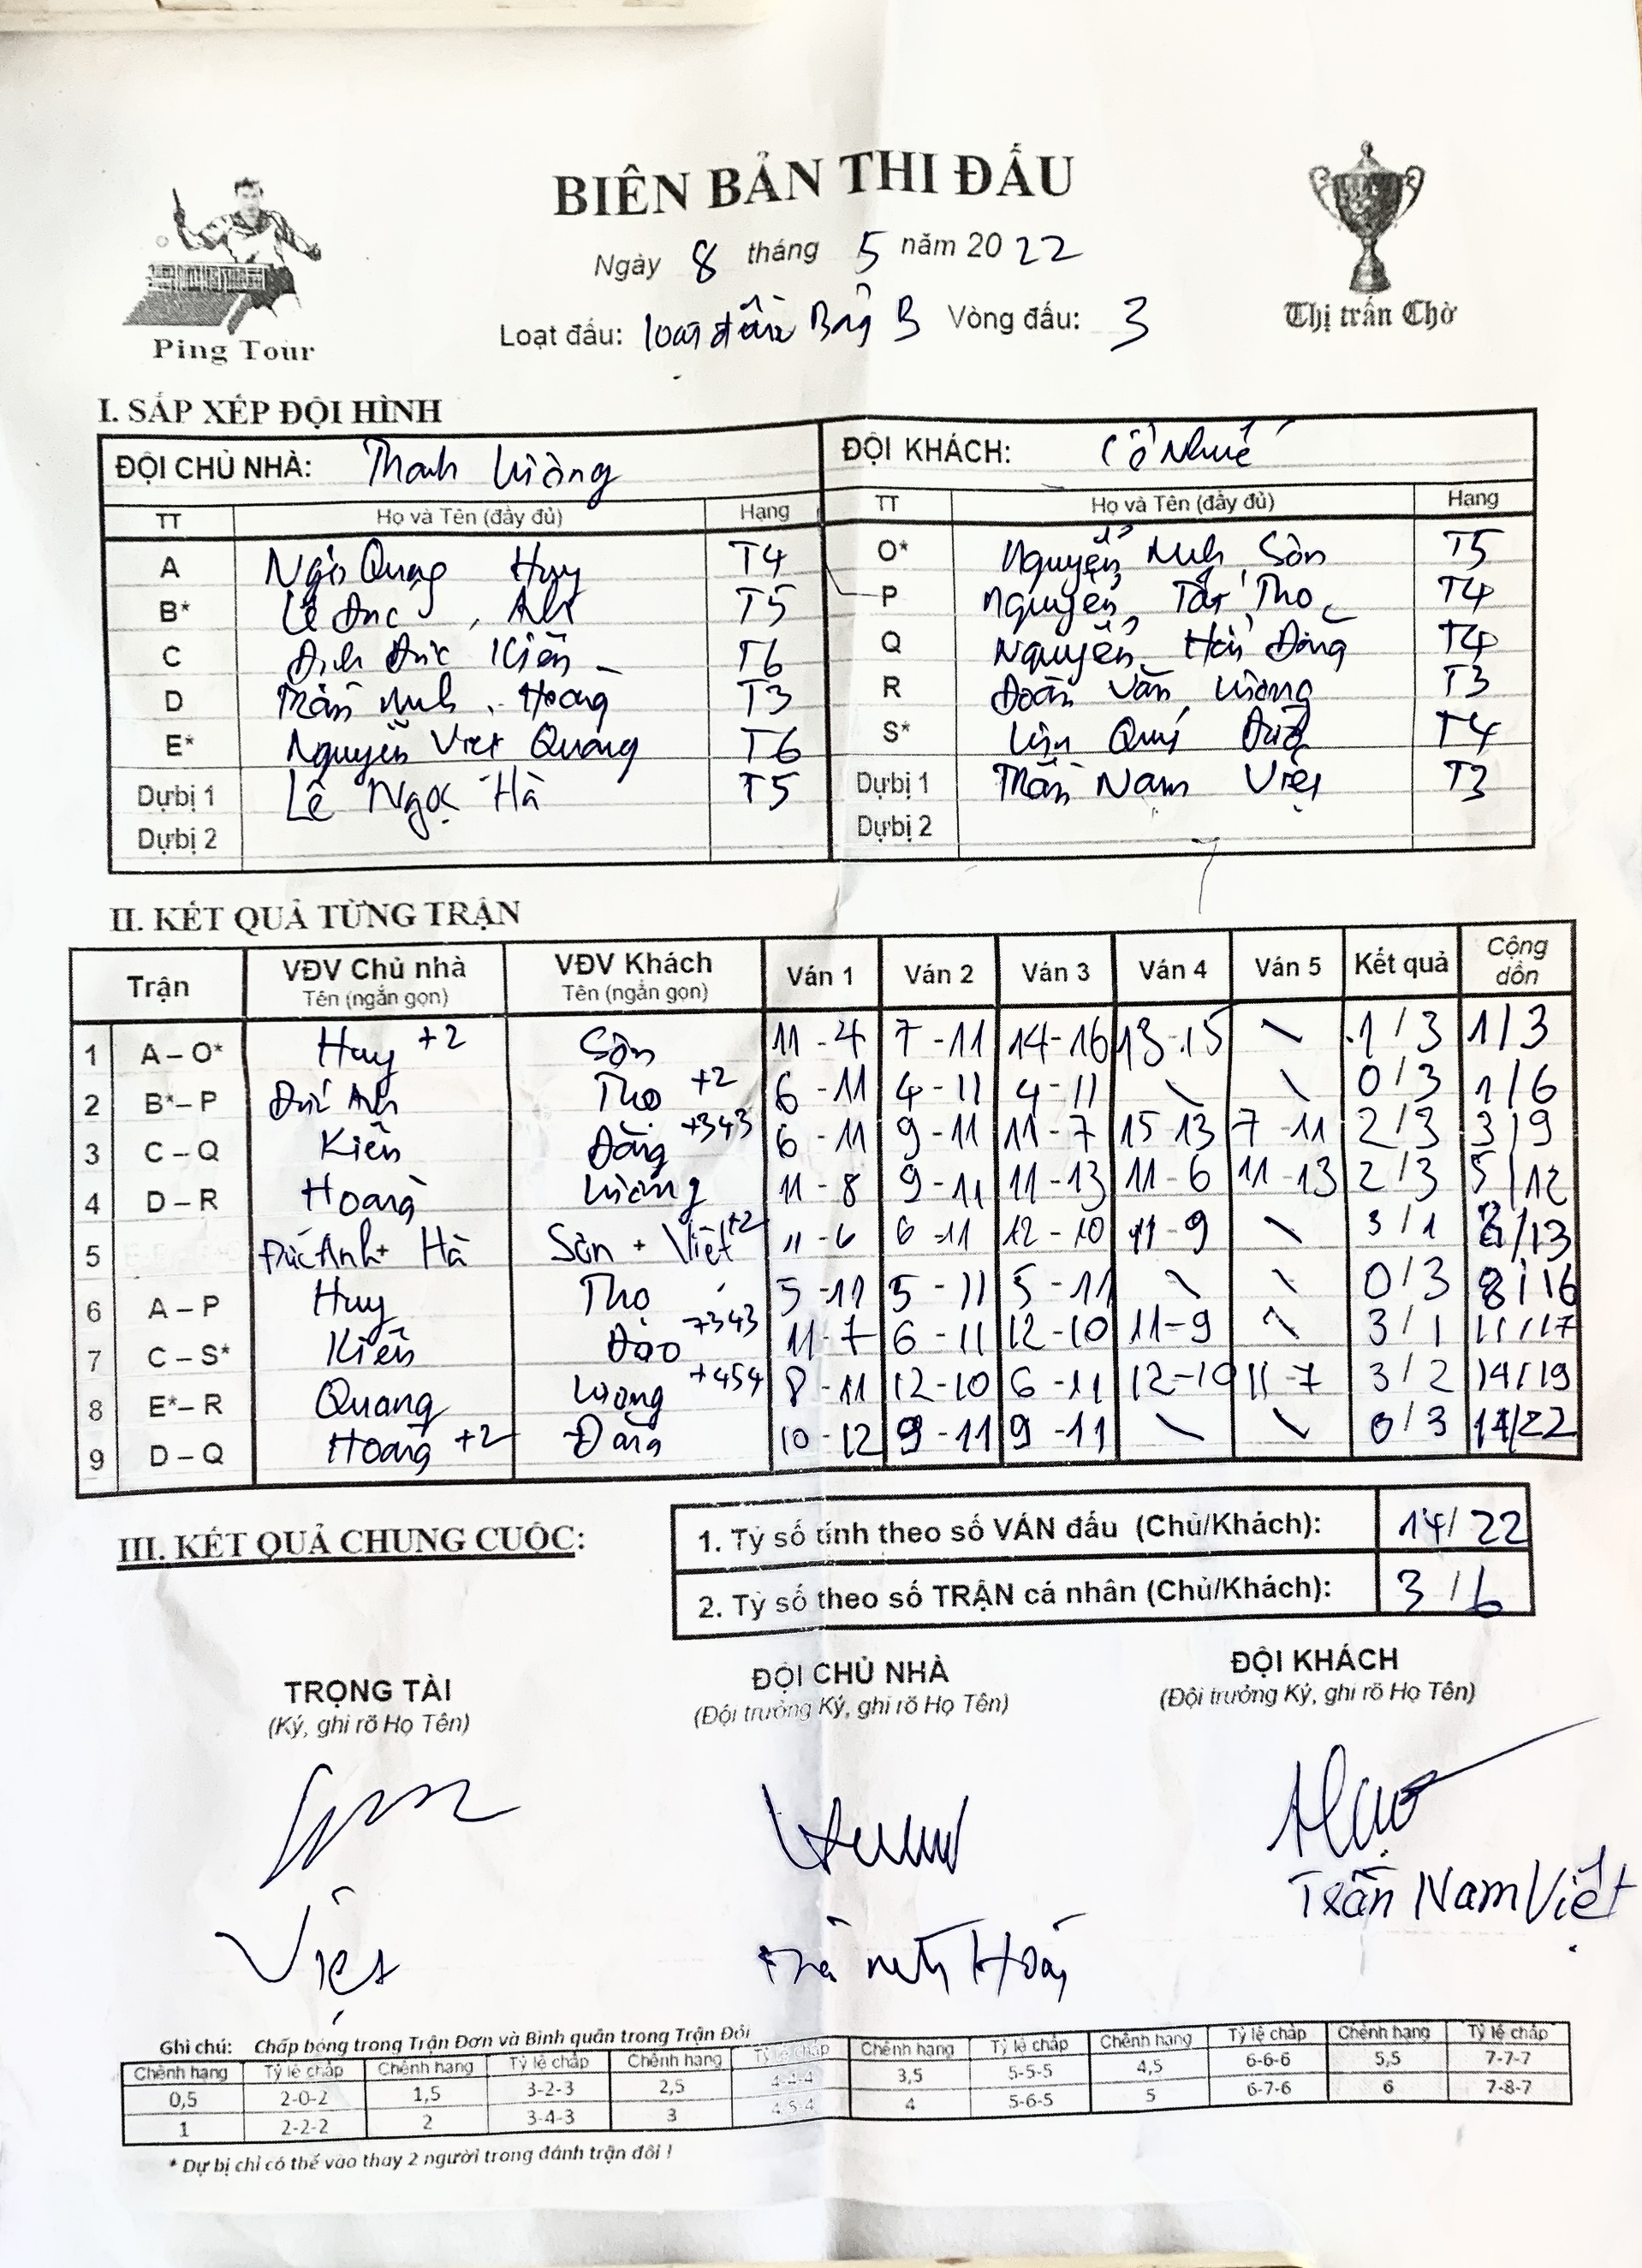 BIÊN BẢN THI ĐẤU
Ngày 8 tháng 5 năm 2022
Loạt đấu: Bảng B Vòng đấu: 3
Ping Tour
Thị trấn Chờ
I. SẮP XẾP ĐỘI HÌNH
ĐỘI CHỦ NHÀ: Thanh Lương ĐỘI KHÁCH: Cổ Nhuế
TT Họ và Tên (đầy đủ) Hạng TT Họ và Tên (đầy đủ) Hạng
A Ngô Quang Huy T4 O* Nguyễn Anh Sơn T5
B* Lê Đức Anh T5 P Nguyễn Tất Thọ T4
C Đinh Đức Kiên T6 Q Nguyễn Đăng T4
D Trần Anh Hoàng T3 R Đoàn Văn Lương T3
E* Nguyễn Việt Quang T6 S* Quý T4
Dự bị 1 Lê Ngọc Hà T5 Dự bị 1 Trần Nam Việt T3
Dự bị 2 Dự bị 2
II. KẾT QUẢ TỪNG TRẬN
Trận VĐV Chủ nhà Tên (ngắn gọn) VĐV Khách Tên (ngắn gọn) Ván 1 Ván 2 Ván 3 Ván 4 Ván 5 Kết quả Cộng dồn
1 A – O* Huy +2 Sơn 11 - 4 7 - 11 14 - 16 13 - 15 \ 1 / 3 1/3
2 B* – P Đức Anh Thọ +2 6 - 11 4 - 11 4 - 11 \ \ 0 / 3 1/6
3 C – Q Kiên Đăng +343 6 - 11 9 - 11 11 - 7 15 - 13 7 - 11 2/3 3/9
4 D – R Hoàng Lương 11 - 8 9 - 11 11 - 13 11 - 6 11 - 13 2/3 5/12
5 Đức Anh + Hà Sơn + Việt +2 11 - 6 6 - 11 12 - 10 11 - 9 \ 3/1 8/13
6 A – P Huy Thọ 5 - 11 5 - 11 5 - 11 \ \ 0/3 8/16
7 C – S* Kiên Đạo +343 11 - 7 6 - 11 12 - 10 11 - 9 \ 3/1 11/17
8 E* – R Quang Lương +454 8 - 11 12 - 10 6 - 11 12 - 10 11 - 7 3/2 14/19
9 D – Q Hoàng +2 Đăng 10 - 12 9 - 11 9 - 11 \ \ 0/3 14/22
III. KẾT QUẢ CHUNG CUỘC:
1. Tỷ số tính theo số VÁN đấu (Chủ/Khách): 14/22
2. Tỷ số theo số TRẬN cá nhân (Chủ/Khách): 3/6
TRỌNG TÀI ĐỘI CHỦ NHÀ ĐỘI KHÁCH
(Ký, ghi rõ Họ Tên) (Đội trưởng Ký, ghi rõ Họ Tên) (Đội trưởng Ký, ghi rõ Họ Tên)
Việt Trần Anh Hoàng Trần Nam Việt
Ghi chú: Chấp bóng trong Trận Đơn và Bình quân trong Trận Đôi
Chênh hạng Tỷ lệ chấp Chênh hạng Tỷ lệ chấp Chênh hạng Tỷ lệ chấp Chênh hạng Tỷ lệ chấp Chênh hạng Tỷ lệ chấp Chênh hạng Tỷ lệ chấp
0,5 2-0-2 1,5 3-2-3 2,5 4-4-4 3,5 5-5-5 4,5 6-6-6 5,5 7-7-7
1 2-2-2 2 3-4-3 3 4-5-4 4 5-6-5 5 6-7-6 6 7-8-7
* Dự bị chỉ có thể vào thay 2 người trong đánh trận đôi !